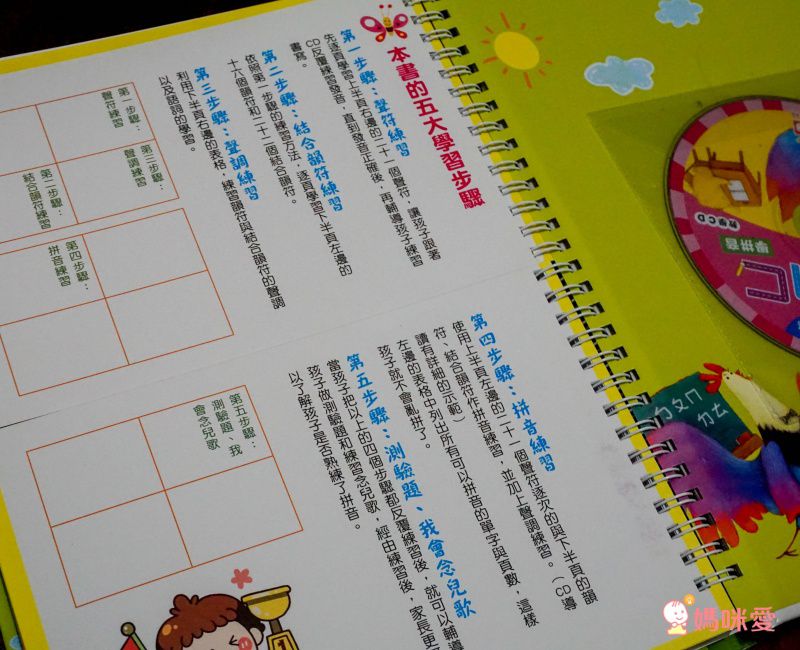 本書的五大學習步驟
第一步驟：聲符練習
先逐頁學習上半頁右邊的二十一個聲符，讓孩子跟著
CD反覆練習發音，直到發音正確後，再輔導孩子練習
書寫。
第二步驟：結合韻符練習
依照第一步驟的練習方法，逐頁學習下半頁左邊的
十六個韻符和二十二個結合韻符。
第三步驟：聲調練習
利用下半頁右邊的表格，練習韻符與結合韻符的聲調
以及語詞的學習。
第一步驟：
聲符練習
第三步驟：
聲調練習
第二步驟：
結合韻符練習
第四步驟：
拼音練習
第四步驟：拼音練習
使用上半頁左邊的二十一個聲符逐次的與下半頁的韻
符、結合韻符作拼音練習，並加上聲調練習。（CD導
讀有詳細的示範）
左邊的表格中列出所有可以拼音的單字與頁數，這樣
孩子就不會亂拼了。
第五步驟：測驗題、我會念兒歌
當孩子把以上的四個步驟都反覆練習後，就可以輔導
孩子做測驗題和練習念兒歌，經由練習後，家長更
以了解孩子是否熟練了拼音。
第五步驟：
測驗題、我
會念兒歌
學拼音
教學CD
ㄅㄆㄇ
ㄉㄊ
1
媽咪愛